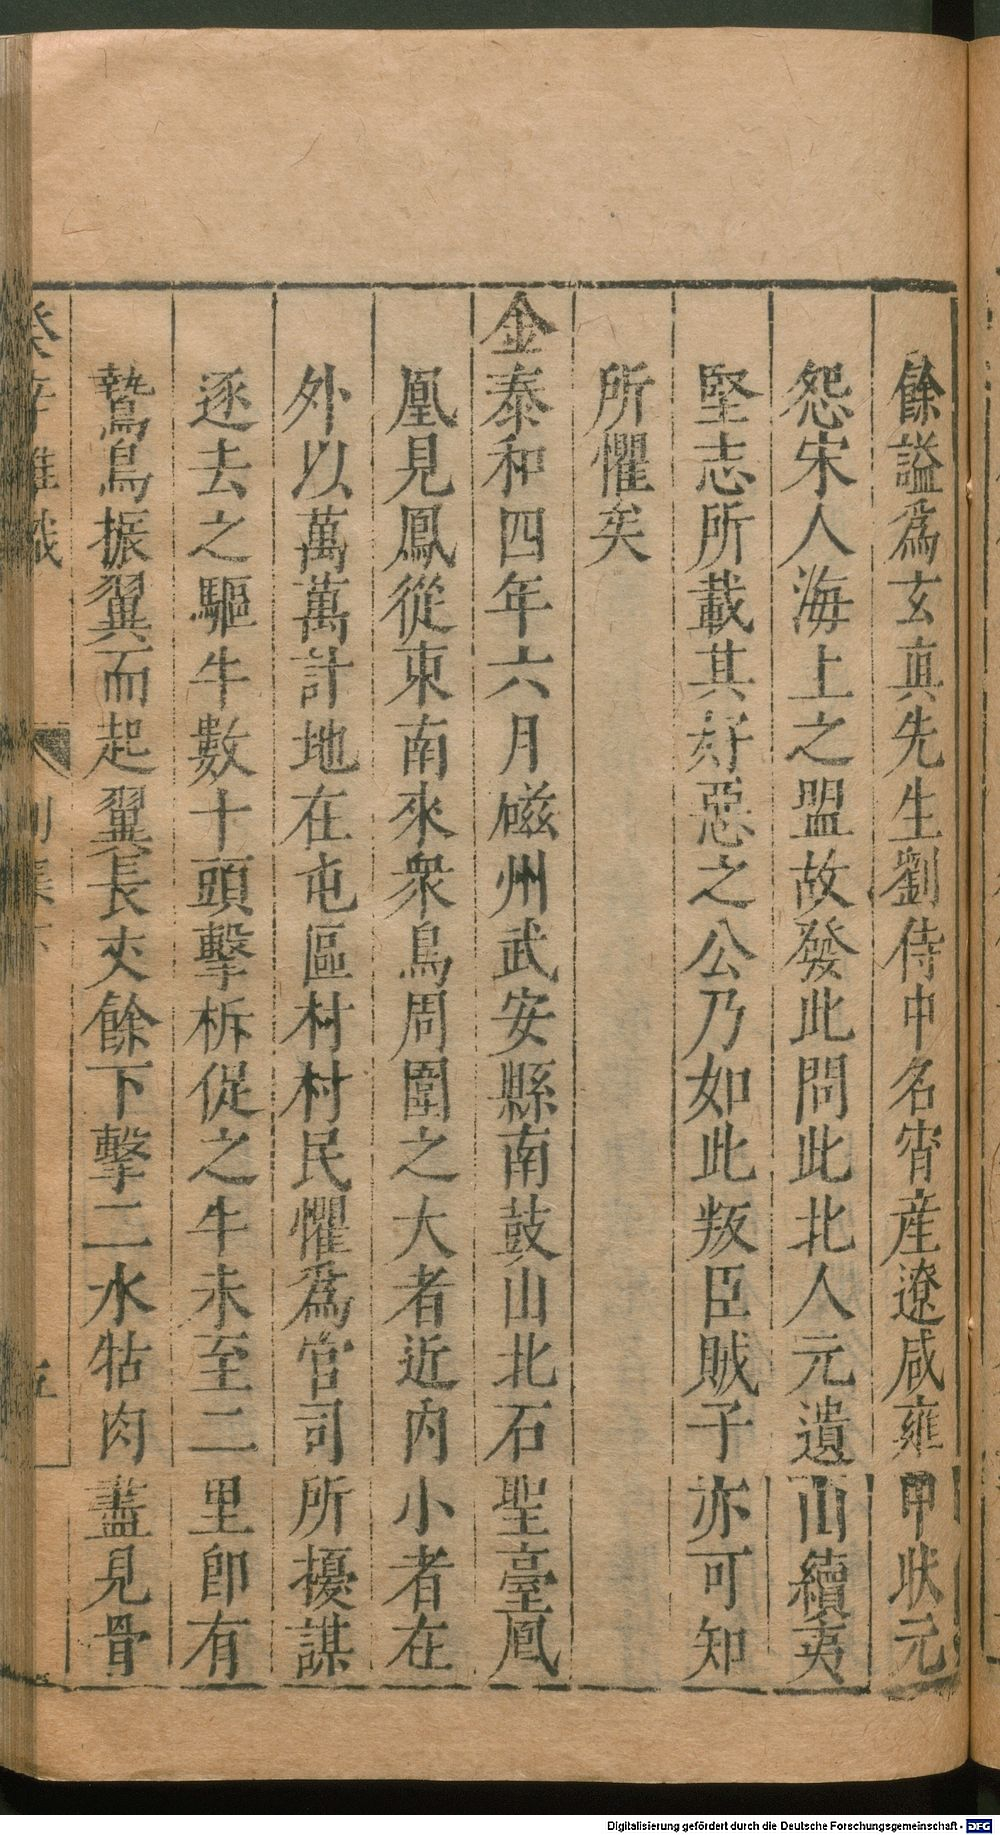 餘謚爲玄真先生劉侍中名宵産遼咸雍甲狀元
怨宋人海上之盟故發此問此北人元遺山續夷
堅志所載其好惡之公乃如此叛臣賊子亦可知
所懼矣
金泰和四年六月磁州武安縣南鼓山北石聖臺鳳
凰見鳳從東南來衆鳥周圍之大者近內小者在
外以萬萬計地在屯區村村民懼爲官司所擾謀
逐去之驅牛數十頭擊柝促之牛未至二里即有
鷙鳥振翼而起翼長丈餘下擊二水牯肉盡見骨
癸辛雜識
別集下
五
Digitalisierung gefördert durch die Deutsche Forschungsgemeinschaft - DFG